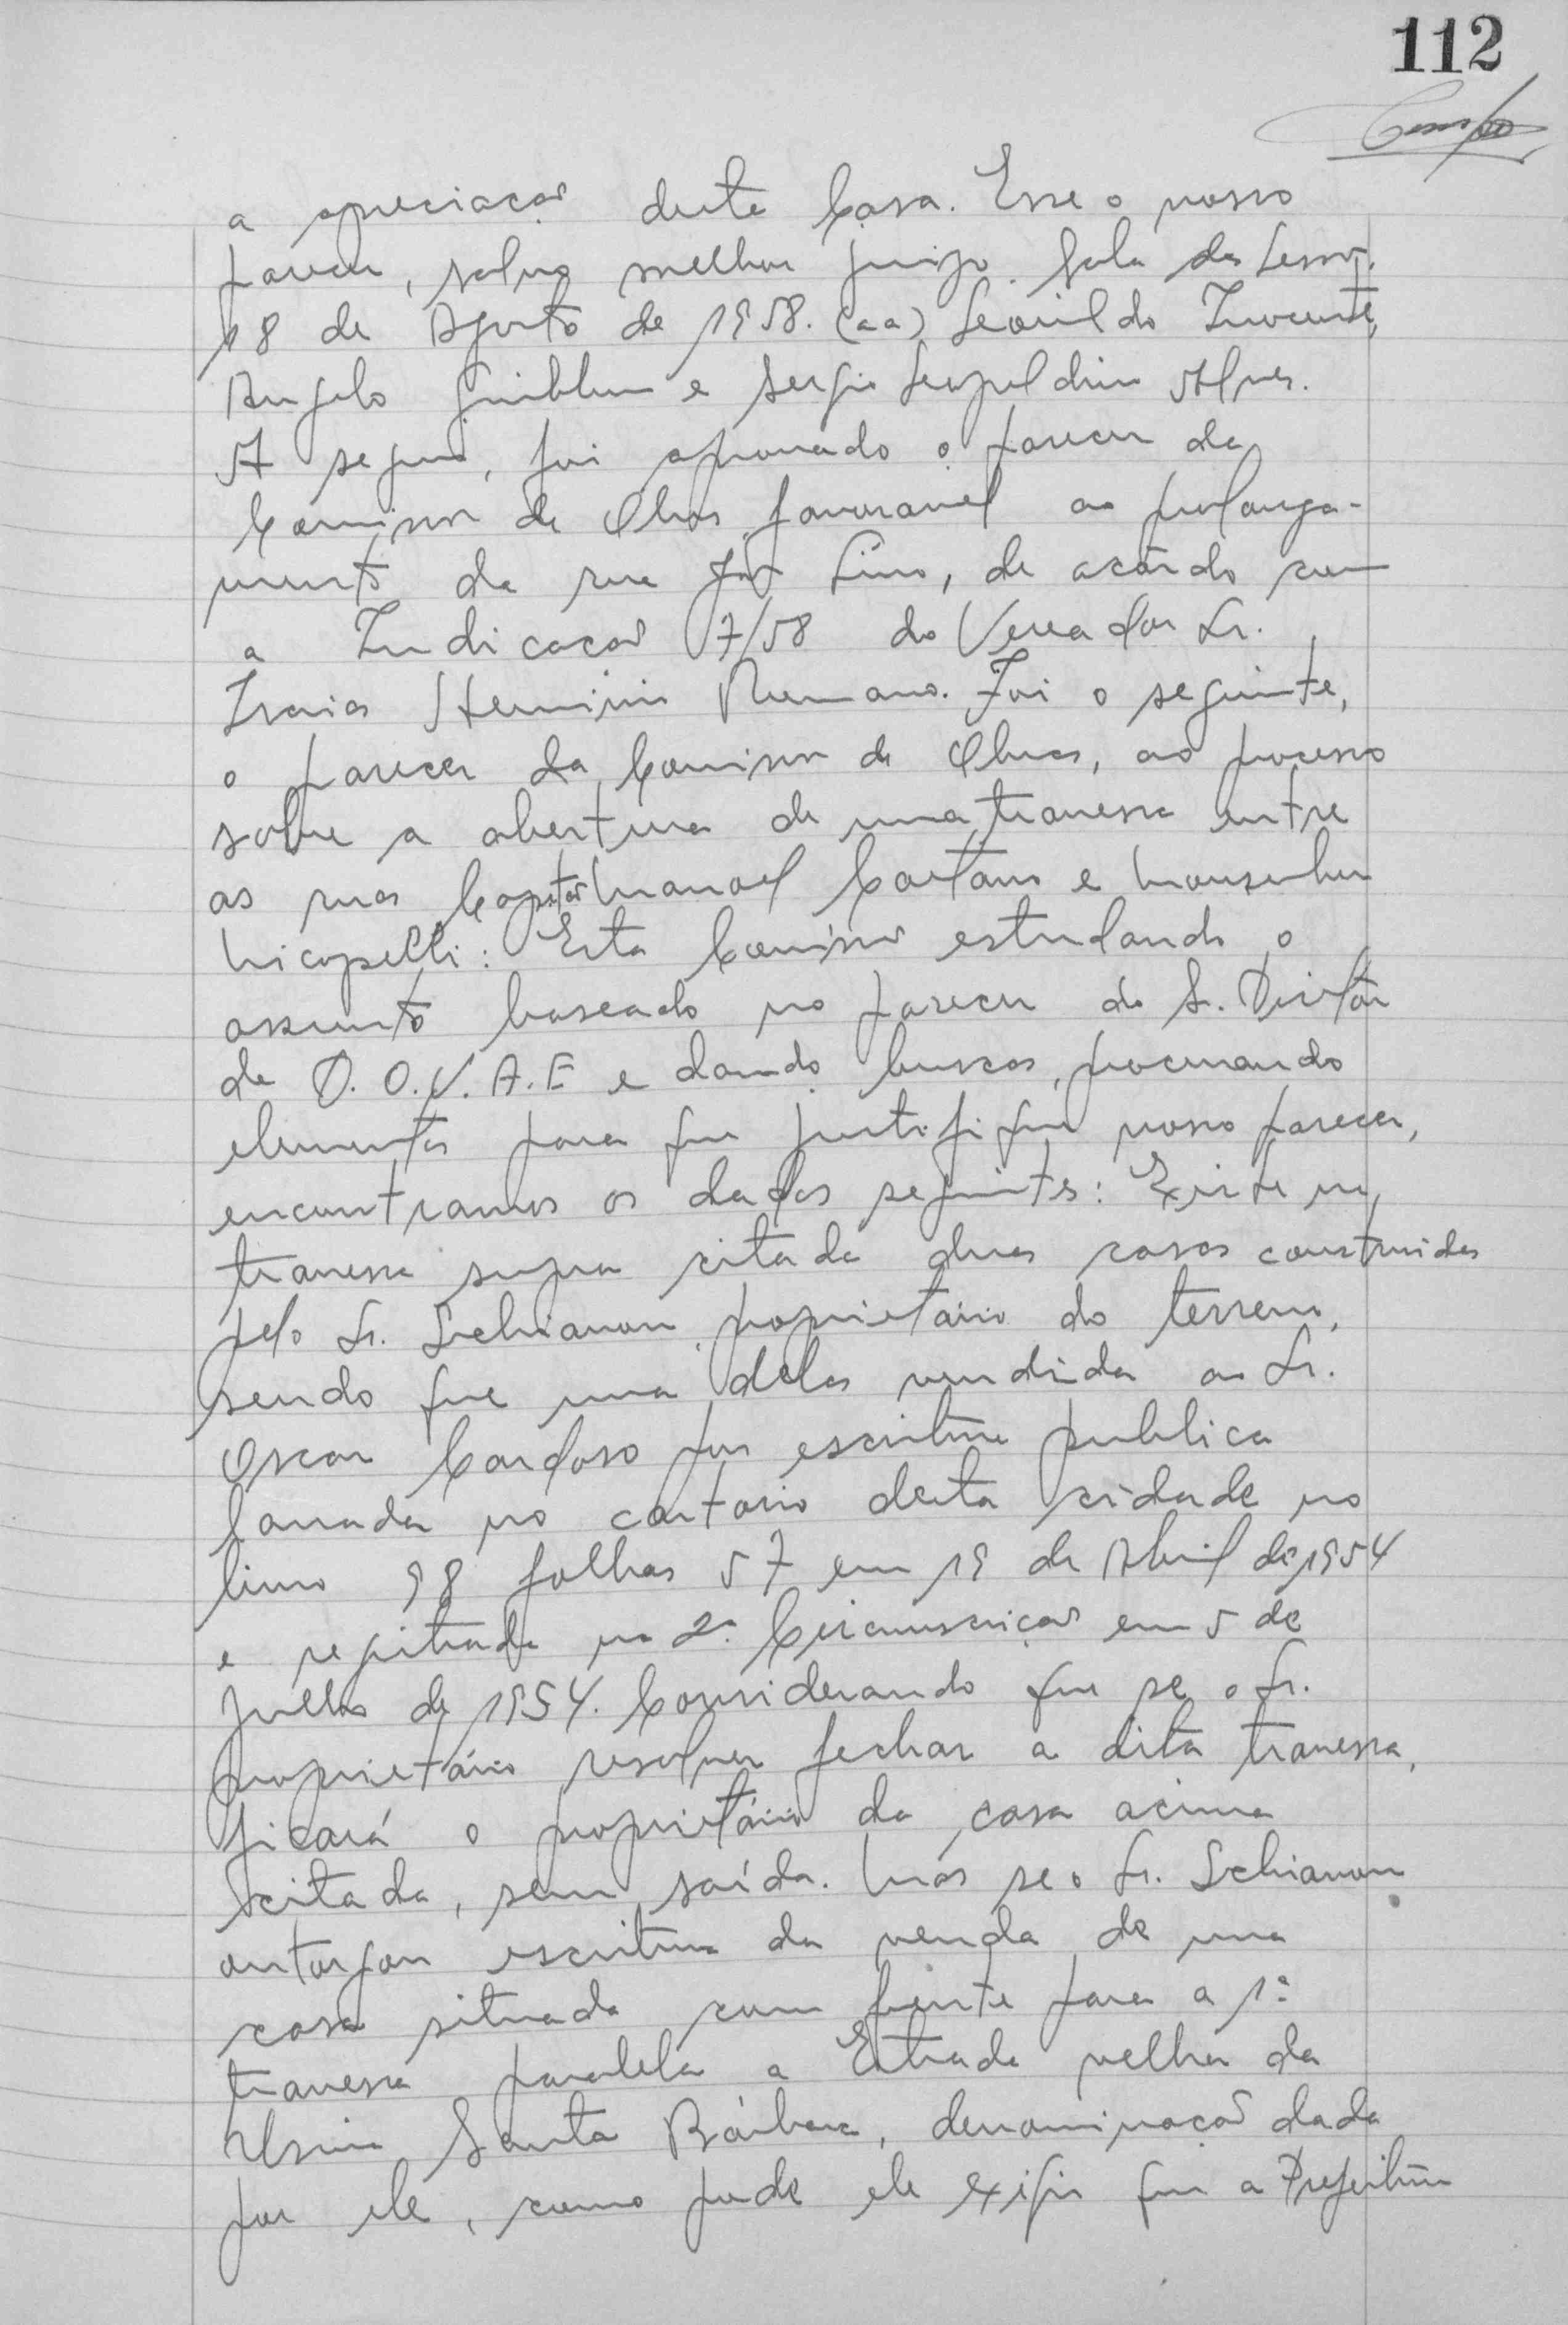 112
a apreciação desta Casa. Esse o nosso
parecer, salvo melhor juizo. Sala das Sessões,
18 de Agosto de 1958. (aa) Leovildo Inocente,
Angelo Giubbina e Sergio Leopoldino Alves.
A seguir, foi aprovado o parecer da
Comissão de Obras favoravel ao prolonga-
mento da rua José Lino, de acôrdo com
a Indicação 7/58 do Vereador Sr.
Isaias Herminio Romano. Foi o seguinte,
o parecer da Comissão de Obras, ao processo
sobre a abertura de uma travessa entre
as ruas Capitão Manoel Caetano e Monsenhor
Nicopelli: Esta Comissão estudando o
assunto baseado no parecer do Sr. Diretôr
de D.O.V.A.E e dando buscas, procurando
elementos para que justifique nosso parecer,
encontramos os dados seguintes: Existe na
travessa supra citada duas casas construidas
pelo Sr. Schiavon proprietário do terreno,
sendo que uma delas vendida ao Sr.
Oscar Cardoso por escritura publica
lavrada no cartorio desta cidade no
livro 98 folhas 57 em 19 de Abril de 1954
e registrada na 2ª Circunscrição em 5 de
Julho de 1954. Considerando que se o Sr.
proprietário resolver fechar a dita travessa,
ficará o proprietário da casa acima
citada, sem saída. Mas se o Sr. Schiavon
outorgou escritura da venda de uma
casa situada com frente para a 1ª
travessa paralela a Estrada velha da
Usina Santa Bárbara, denominação dada
por ele, como pode ele exigir que a Prefeitura